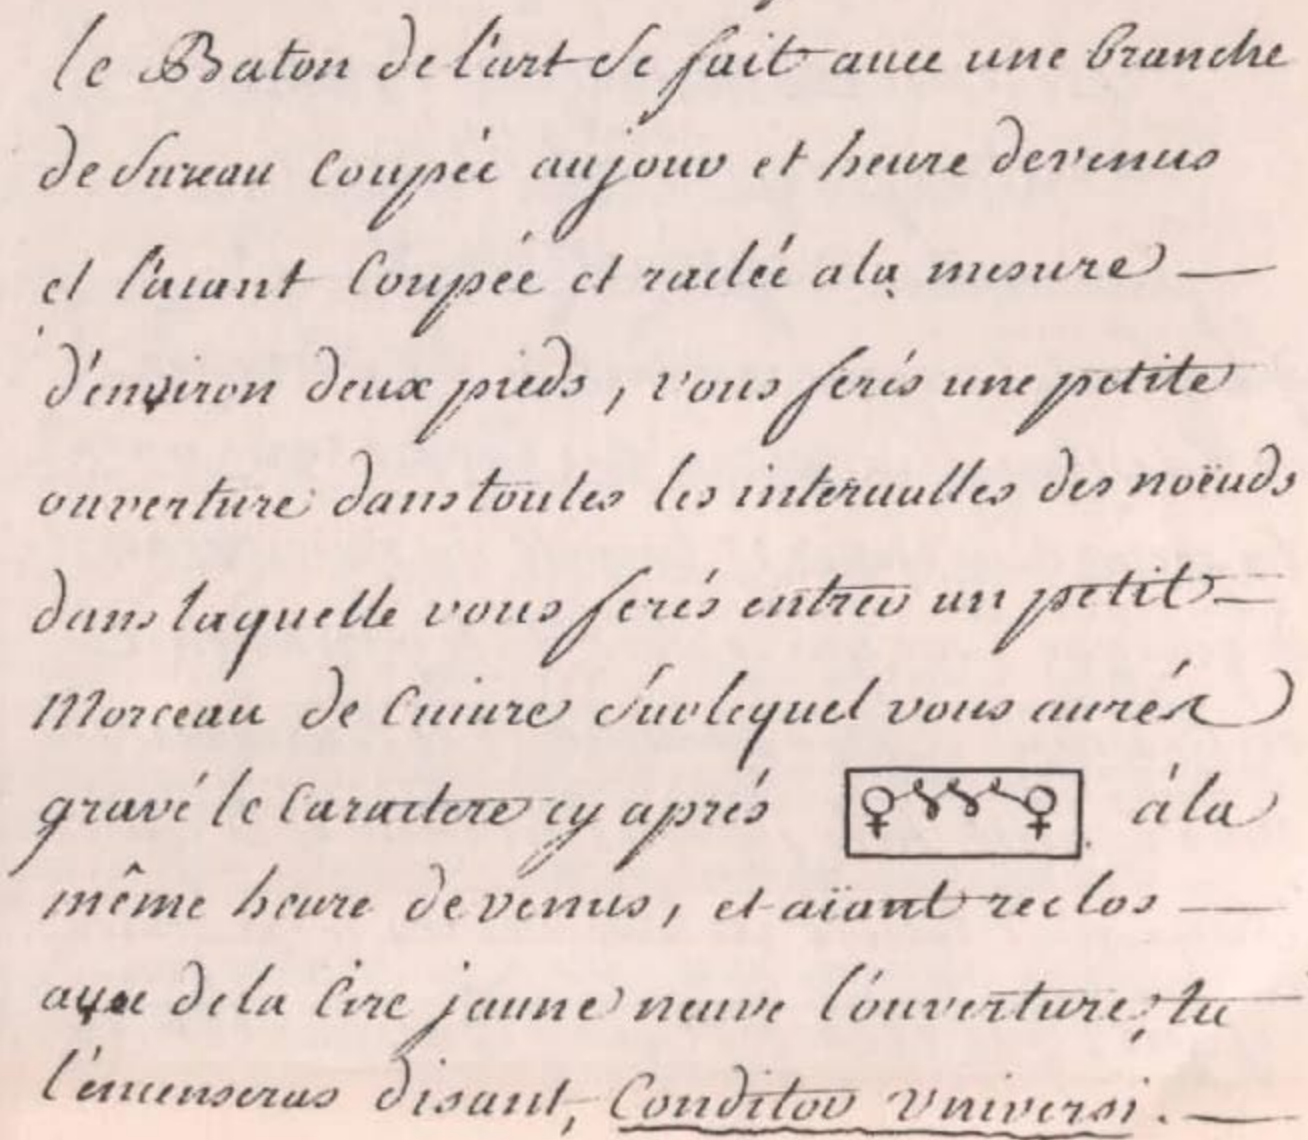 le Baton de l'art se fait avec une branche
de sureau Coupée au jour et heure de venus
et l'aiant Coupée et raclée a la mesure —
d'environ deux pieds, vous ferés une petite
ouverture dans toutes les intervalles des noëuds
dans laquelle vous ferés entrer un petit —
Morceau de Cuivre sur lequel vous aurés
gravé le Caractere cy aprés ♀ ♀ á la
même heure de venus, et aïant reclos —
avec de la Cire jaune neuve l'ouverture, tu
l'encenseras disant, Conditor Vniversi. —